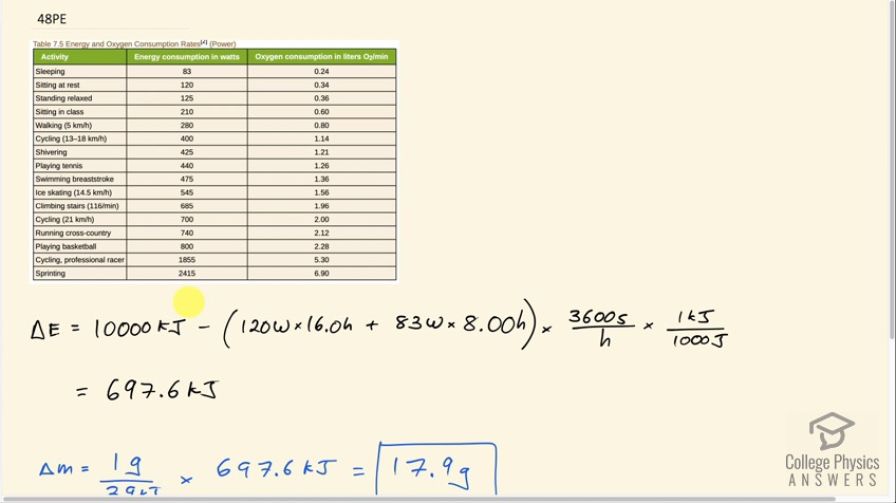 48PE
Table 7.5 Energy and Oxygen Consumption Rates[2] (Power)
Activity Energy consumption in watts Oxygen consumption in liters O2/min
Sleeping 83 0.24
Sitting at rest 120 0.34
Standing relaxed 125 0.36
Sitting in class 210 0.60
Walking (5 km/h) 280 0.80
Cycling (13–18 km/h) 400 1.14
Shivering 425 1.21
Playing tennis 440 1.26
Swimming breaststroke 475 1.36
Ice skating (14.5 km/h) 545 1.56
Climbing stairs (116/min) 685 1.96
Cycling (21 km/h) 700 2.00
Running cross-country 740 2.12
Playing basketball 800 2.28
Cycling, professional racer 1855 5.30
Sprinting 2415 6.90
ΔE = 10000 kJ − (120W × 16.0h + 83W × 8.00h) × 3600s/h × 1kJ/1000J
= 697.6 kJ
Δm = 1g/39kJ × 697.6 kJ = 17.9g
College Physics
ANSWERS